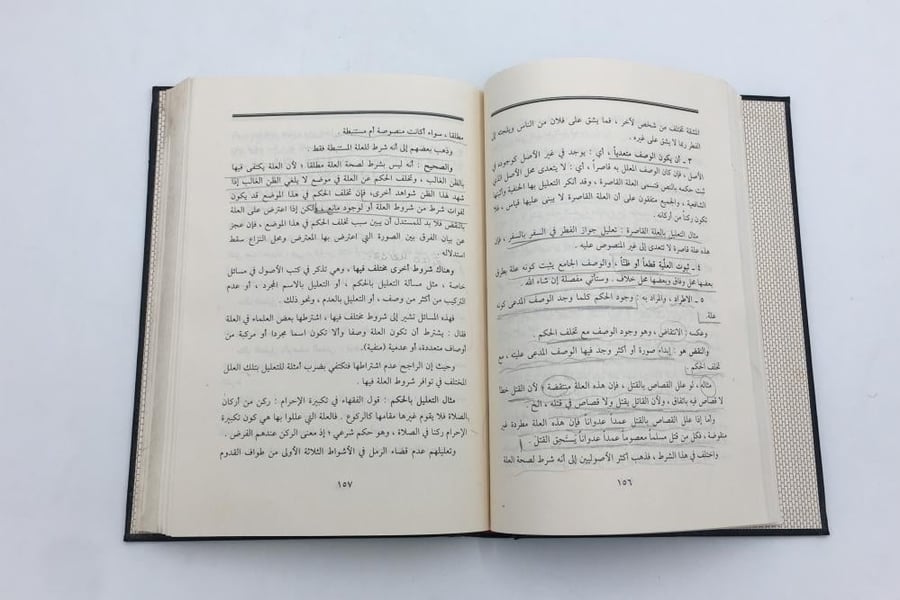 المشقة تختلف من شخص لآخر ، فما يشق على فلان من الناس ويلجئه إلى
الفطر ربما لا يشق على غيره .
٣ ـ أن يكون الوصف متعدياً ، أي : يوجد في غير الأصل كوجوده في
الأصل ، فإن كان الوصف المعلل به قاصراً ، أي : لا يتعدى محل الأصل الذي
ثبت حكمه بالنص فتسمى العلة القاصرة ، وقد أنكر التعليل بها الحنفية وأثبتها
الشافعية ، والجميع متفقون على أن العلة القاصرة لا يبنى عليها قياس ، فلا
تكون ركناً من أركانه .
مثال التعليل بالعلة القاصرة : تعليل جواز الفطر في السفر بالسفر ، فإن
هذه علة قاصرة لا تتعدى إلى غير المنصوص عليه .
٤ ـ ثبوت العلية قطعاً أو ظناً ، والوصف الجامع يثبت كونه علة بطرق
بعضها محل وفاق وبعضها محل خلاف . وستأتي مفصلة إن شاء الله .
٥ ـ الاطراد ، والمراد به : وجود الحكم كلما وجد الوصف المدعى كونه
علة .
وعكسه : الانتقاض ، وهو وجود الوصف مع تخلف الحكم .
والنقض هو : إبداء صورة أو أكثر وجد فيها الوصف المدعى عليته ، مع
تخلف الحكم .
مثاله ، لو علل القصاص بالقتل ، فإن هذه العلة منتقضة ؛ لأن القتل خطأ
لا قصاص فيه باتفاق ، ولأن القاتل يقتل ولا قصاص في قتله ، الخ .
وأما إذا علل القصاص بالقتل عمداً عدواناً فإن هذه العلة مطردة غير
منقوضة ، فكل من قتل مسلماً معصوماً عمداً عدواناً يستحق القتل .
واختلف في هذا الشرط ، فذهب أكثر الأصوليين إلى أنه شرط لصحة العلة
١٥٦
مطلقا ، سواء أكانت منصوصة أم مستنبطة
وذهب بعضهم إلى أنه شرط للعلة المستنبطة فقط .
والصحيح : أنه ليس بشرط لصحة العلة مطلقا ؛ لأن العلة يكتفى فيها
بالظن الغالب ، وتخلف الحكم عن العلة في موضع لا يلغي الظن الغالب إذا
شهد لهذا الظن شواهد أخرى، فإن تخلف الحكم في هذا الموضع قد يكون
لفوات شرط من شروط العلة أو لوجود مانع ، ولكن إذا اعترض على العلة
بالنقض فلا بد للمستدل أن يبين سبب تخلف الحكم في هذا الموضع ، فإن عجز
عن بيان الفرق بين الصورة التي اعترض بها المعترض ومحل النزاع سقط
استدلاله .
وهناك شروط أخرى مختلف فيها ، وهي تذكر في كتب الأصول في مسائل
خاصة ، مثل مسألة التعليل بالحكم ، أو التعليل بالاسم المجرد ، أو عدم
التركيب من أكثر من وصف ، أو التعليل بالعدم ، ونحو ذلك .
فهذه المسائل تشير إلى شروط مختلف فيها ، اشترطها بعض العلماء في العلة
فقال : يشترط أن تكون العلة وصفا وألا تكون اسما مجردا أو مركبة من
أوصاف متعددة، أو عدمية (منفية).
وحيث إن الراجح عدم اشتراطها فنكتفي بضرب أمثلة للتعليل بتلك العلل
المختلف في توافر شروط العلة فيها .
مثال التعليل بالحكم : قول الفقهاء في تكبيرة الإحرام : ركن من أركان
الصلاة فلا يقوم غيرها مقامها كالركوع . فالعلة التي عللوا بها هي كون تكبيرة
الإحرام ركنا في الصلاة ، وهو حكم شرعي ؛ إذ معنى الركن عندهم الفرض .
وتعليلهم عدم قضاء الرمل في الأشواط الثلاثة الأولى من طواف القدوم
١٥٧